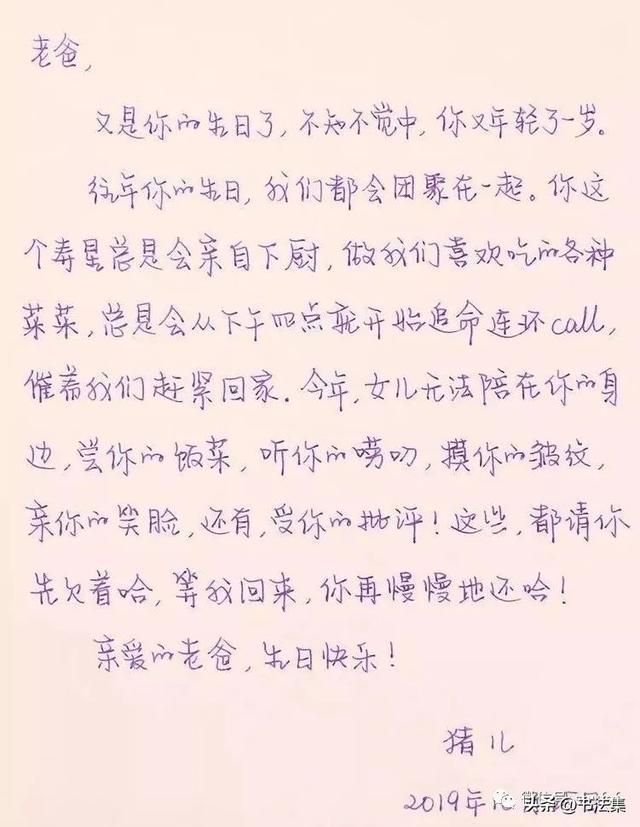 老爸,
又是你的生日了,不知不觉中,你又年轻了一岁。
往年你的生日,我们都会团聚在一起。你这
个寿星总是会亲自下厨,做我们喜欢吃的各种
菜菜,总是会从下午四点就开始追命连环call,
催着我们赶紧回家.今年,女儿无法陪在你的身
边,尝你的饭菜,听你的唠叨,摸你的皱纹,
亲你的笑脸,还有,受你的批评!这些,都请你
先欠着哈,等我回来,你再慢慢地还哈!
亲爱的老爸,生日快乐!
猪儿
2019年
头条@书法集